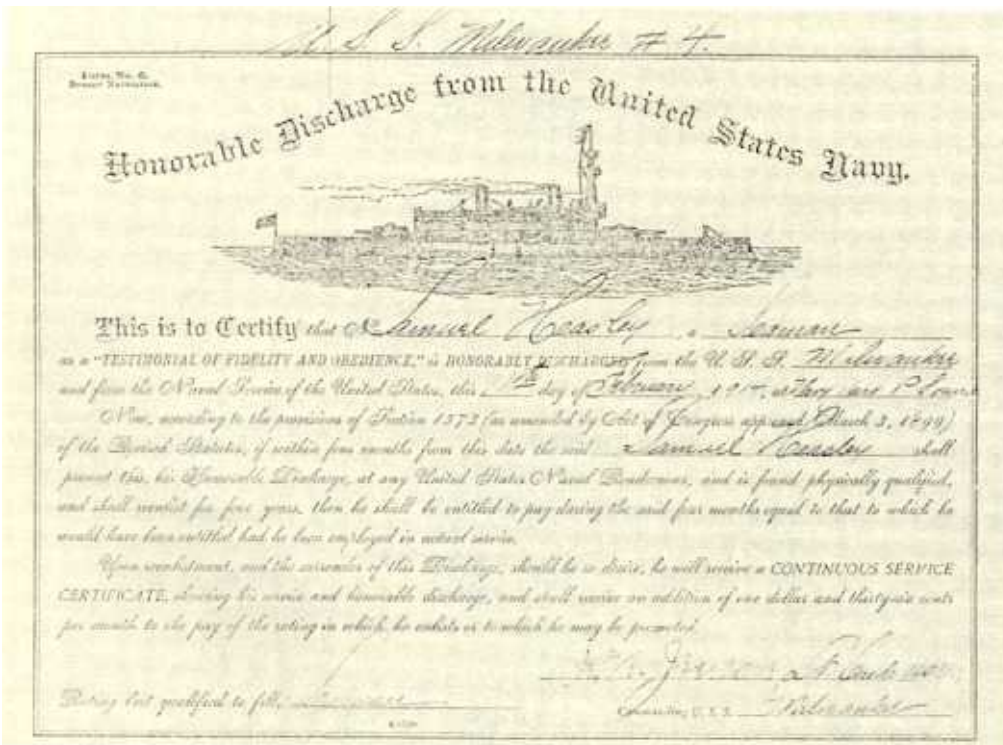 U. S. S. Milwaukee # 4.
Form No. 6.
Honorable Discharge from the United States Navy.
This is to Certify that No. Samuel Heasley, a Seaman
as a "TESTIMONIAL OF FIDELITY AND OBEDIENCE," is HONORABLY DISCHARGED from the U. S. S. Milwaukee
and from the Naval Service of the United States, this day of February 191 at
Now, according to the provisions of Section 1573 (as amended by Act of Congress approved March 3, 1899)
of the Revised Statutes, if within four months from this date the said Samuel Heasley shall
present this, his Honorable Discharge, at any United States Naval Rendezvous, and is found physically qualified,
and shall reenlist for four years, then he shall be entitled to pay during the said four months equal to that to which he
would have been entitled had he been employed in actual service.
Upon reenlistment, and the surrender of this Discharge, should he so desire, he will receive a CONTINUOUS SERVICE
CERTIFICATE, showing his service and honorable discharge, and shall receive an addition of one dollar and thirty-six cents
per month to the pay of the rating in which he enlists or to which he may be promoted.
Rating best qualified to fill,
Commanding, U. S. S. Milwaukee